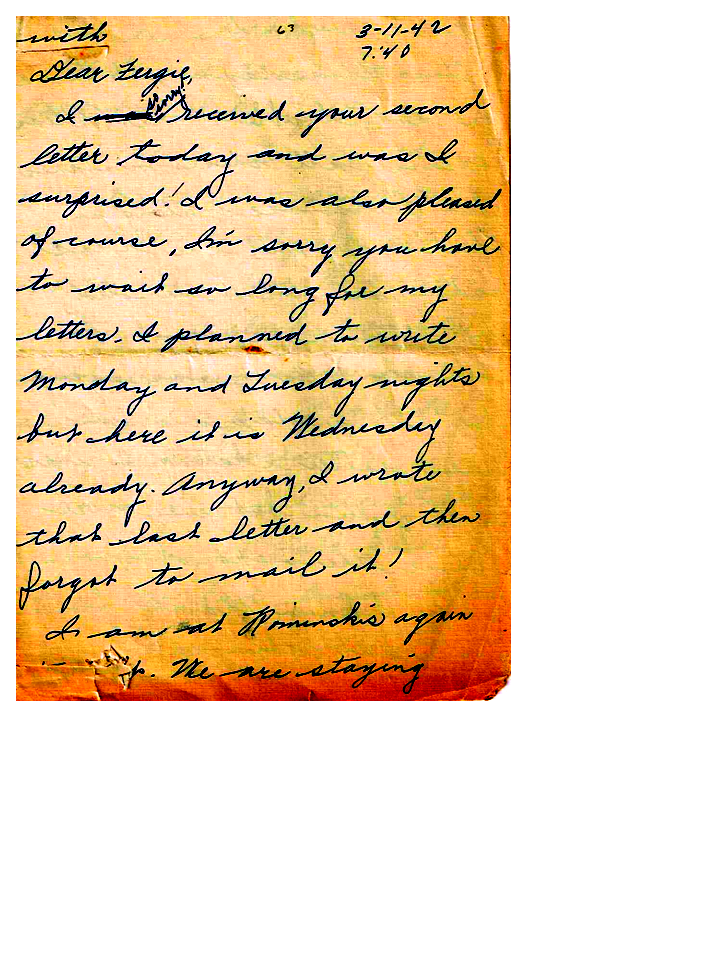 with 63 3-11-42
7:40
Dear Fergie,
I was sorry! received your second
letter today and was I
surprised! I was also pleased
of course, I'm sorry you have
to wait so long for my
letters. I planned to write
Monday and Tuesday nights
but here it is Wednesday
already. Anyway, I wrote
that last letter and then
forgot to mail it!
I am at Rominski's again
p. We are staying